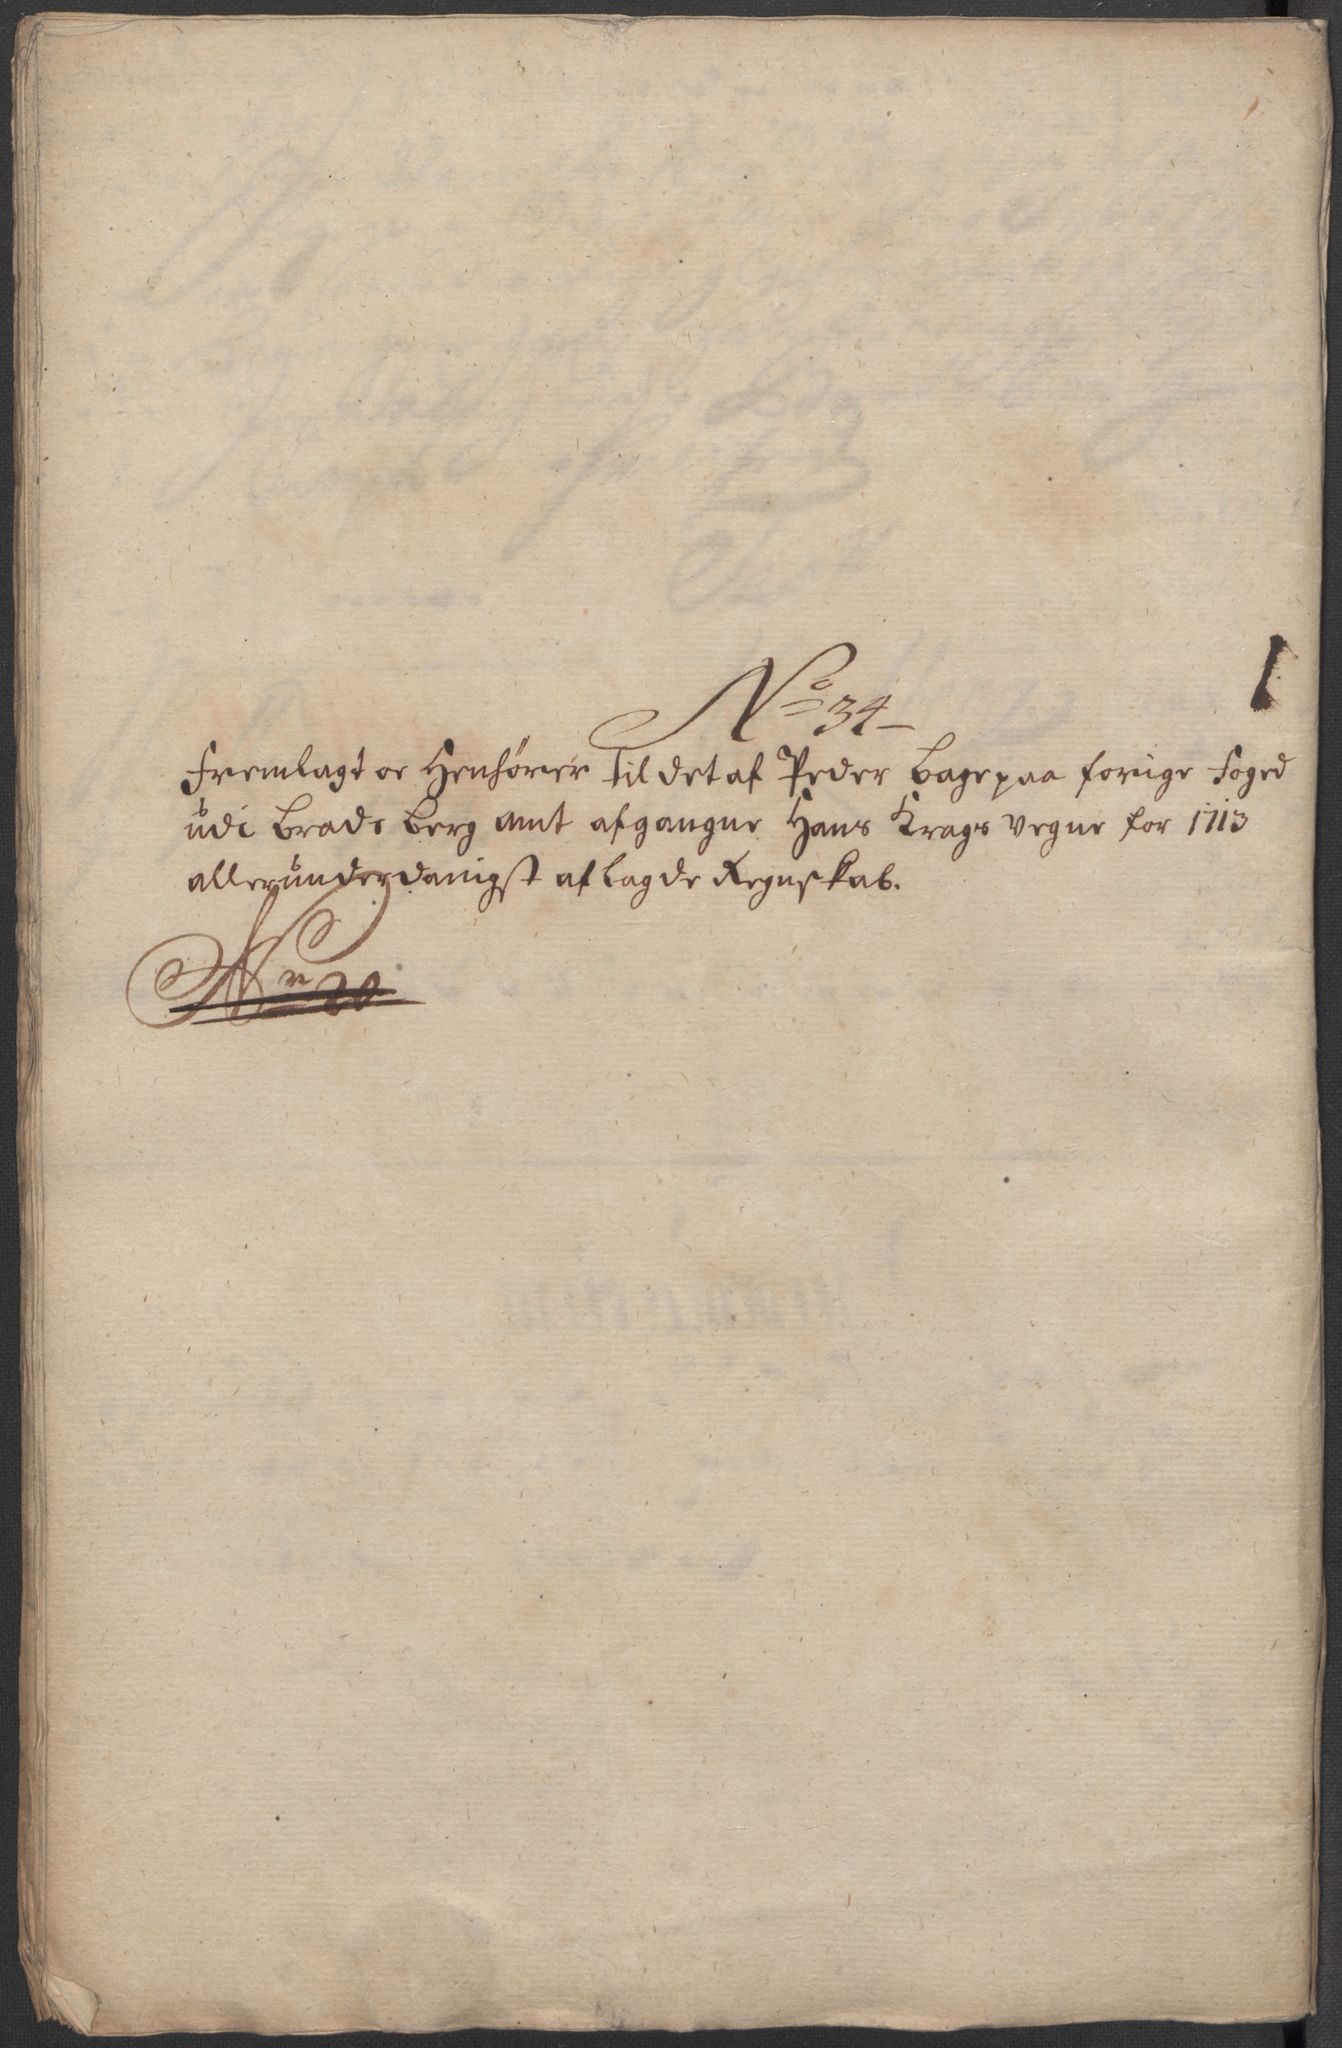 No 34
Fremlagt oc Henhörer til det af Peder Bagepaa forige Foged
udi Brads berg amt afgangne Hans Krags vegne for 1713
allerunderdanigst aflagde Regnskab.